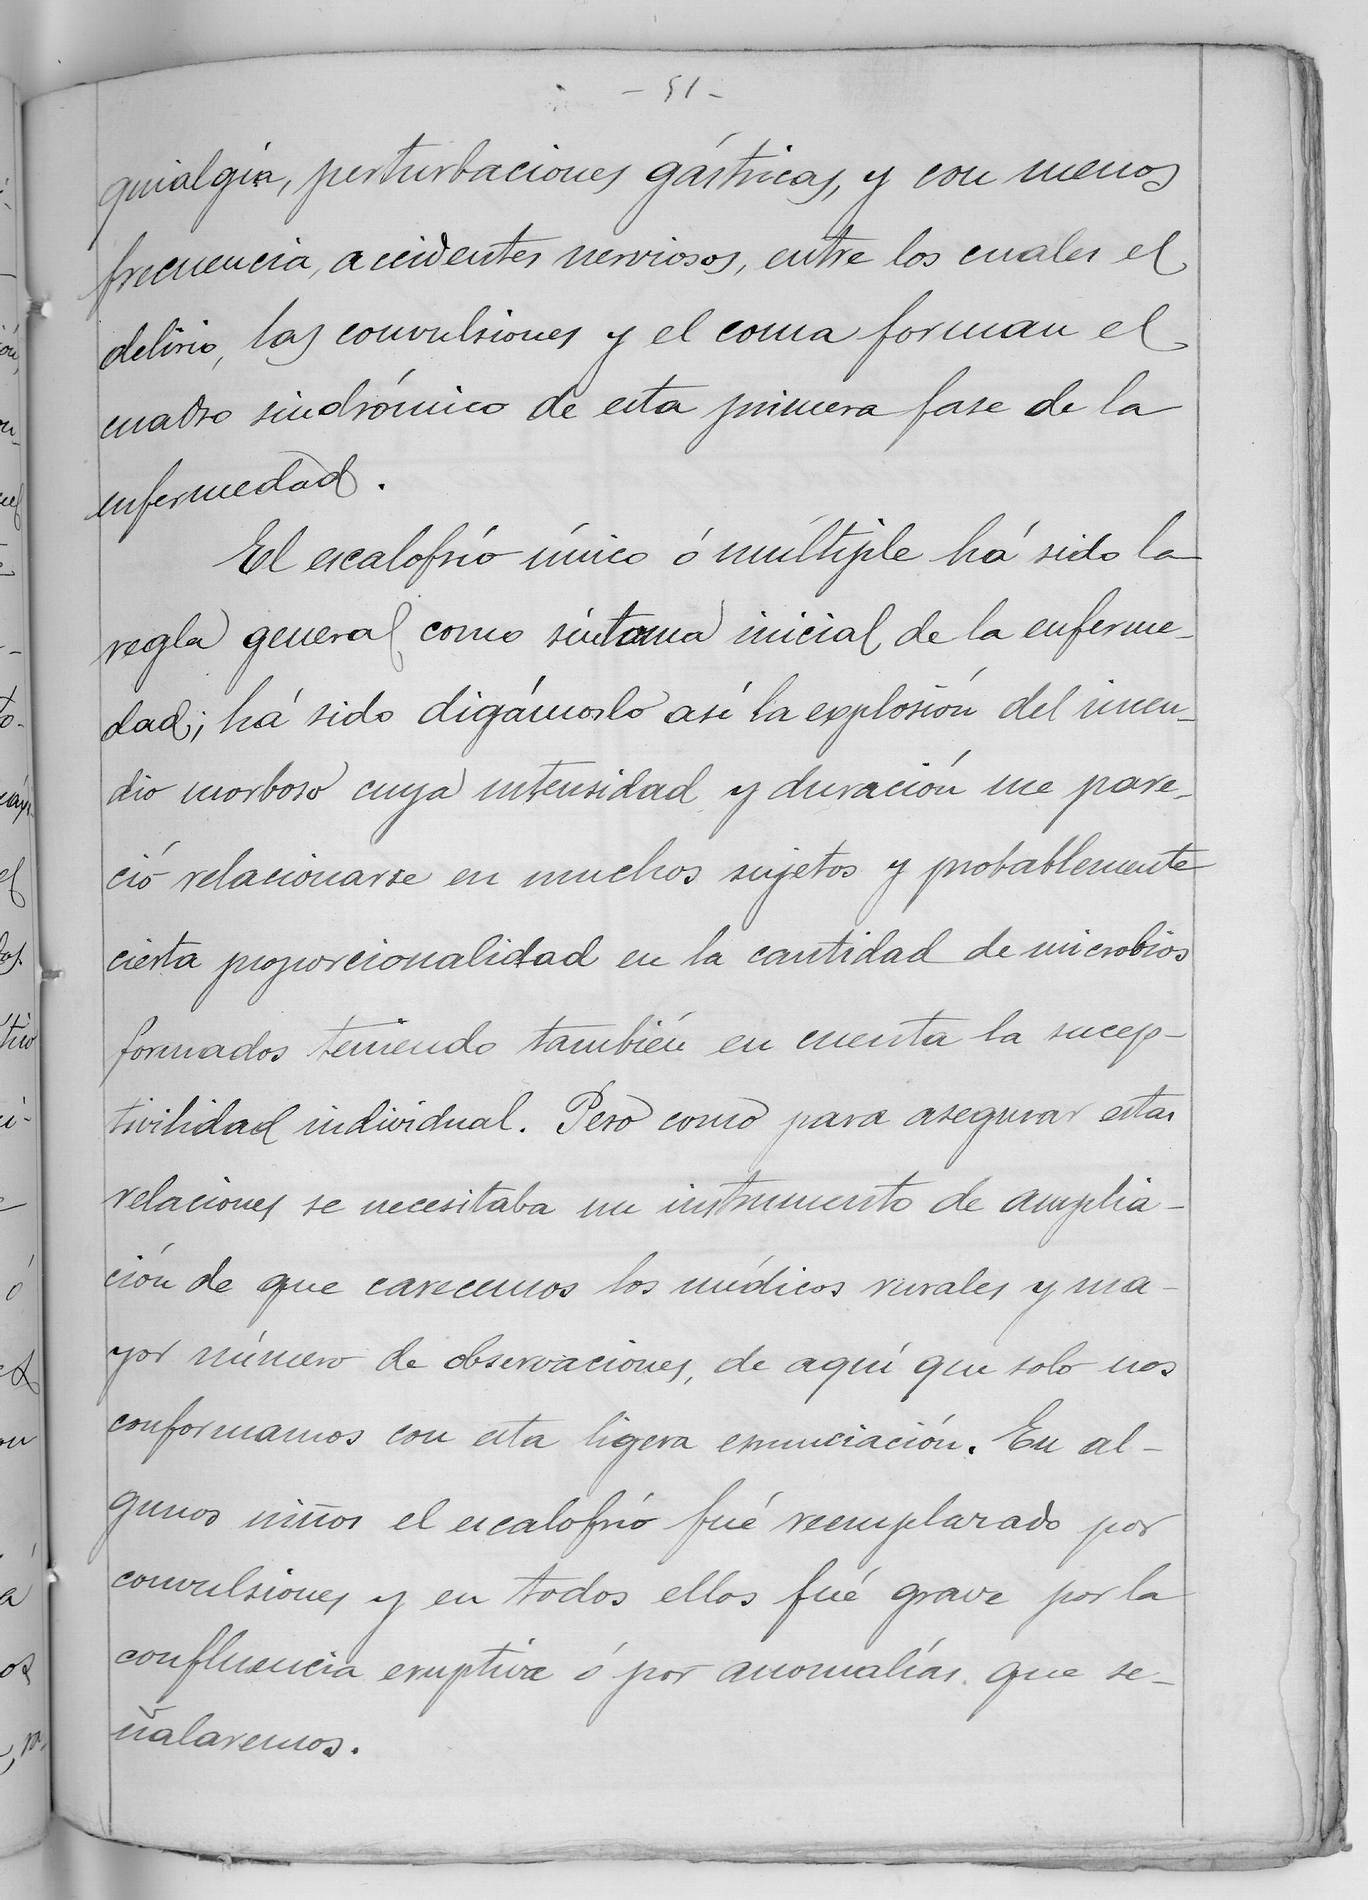 - 51 -
quialgia, perturbaciones gástricas, y con menos
frecuencia, accidentes nerviosos, entre los cuales el
delirio, las convulsiones y el coma forman el
cuadro sindrómico de esta primera fase de la
enfermedad.
El escalofrío único ó múltiple há sido la
regla general como síntoma inicial de la enferme-
dad; há sido digámoslo asi la explosión del incen-
dio morboso cuya intensidad y duración me pare-
ció relacionarse en muchos sujetos y probablemente
cierta proporcionalidad en la cantidad de microbios
formados teniendo también en cuenta la sucep-
tivilidad individual. Pero como para asegurar estas
relaciones se necesitaba un instrumento de amplia-
ción de que carecemos los médicos rurales y ma-
yor número de observaciones, de aquí que solo nos
conformamos con esta ligera enunciación. En al-
gunos niños el escalofrío fué reemplazado por
convulsiones y en todos ellos fué grave por la
confluencia eruptiva ó por anomalías que se-
ñalaremos.